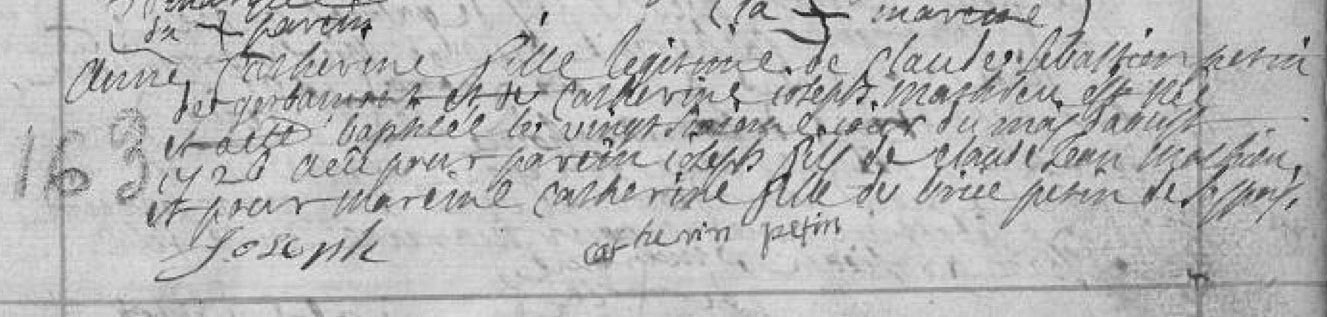 du + parein (la + mareine)
Anne Catherine fille legitime de Claude Sebastien petin
de gerbamont et de Catherine ioseph mathieu est née
et a été baptisée le vingt sixieme iour du mois d'aoust
1726 a eu pour parein ioseph fils de Claude Jean Mathieu,
163
et pour mareine Catherine fille de brice petin de
Joseph catherin petin